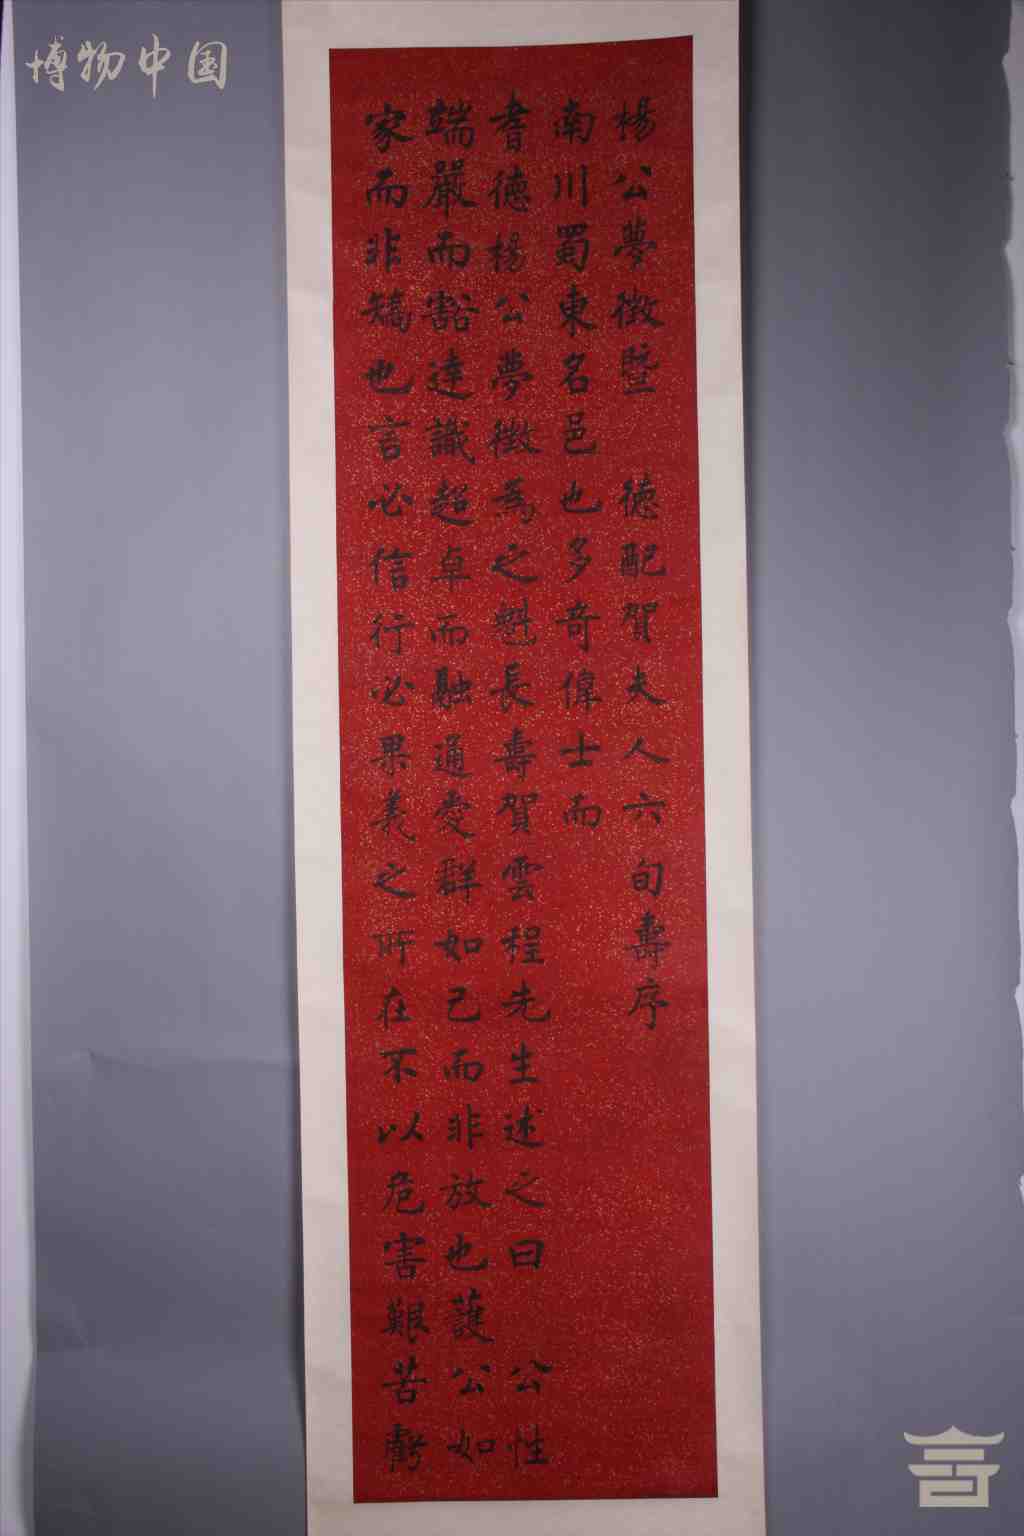 博物中国
楊公夢徵暨 德配賀夫人六旬壽序
南川蜀東名邑也多奇偉士而
耆德楊公夢徵為之魁長壽賀雲程先生述之曰 公性
端嚴而豁達識超卓而融通愛群如己而非放也護公如
家而非矯也言必信行必果義之所在不以危害艱苦虧